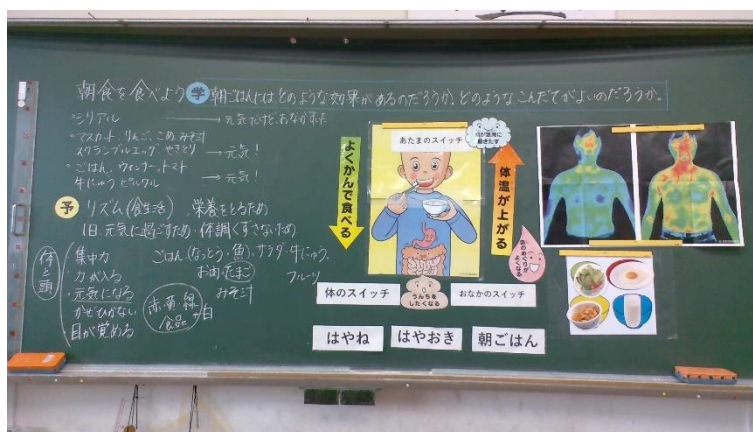 朝食を食べよう 学 朝ごはんには、どのような効果があるのだろうか。どのようなこんだてがよいのだろうか。
・シリアル → 元気だけど、おなかすいた
・マスカット、りんご、こめ、みそ汁
スクランブルエッグ、やきとり → 元気!
・ごはん、ウィンナー、トマト
牛にゅう ピルクル → 元気!
予 リズム(食生活) 栄養をとるため
1日、元気に過ごすため・体調くずさないため
体と頭
集中力
力が入る
元気になる
かぜひかない
目が覚める
ごはん(なっとう・魚)、サラダ・牛にゅう、
たまご
みそ汁
フルーツ
赤・黄・緑
食品
白
よくかんで食べる
あたまのスイッチ
脳が活発に
動きだす
体温が上がる
血のめぐりが
よくなる
体のスイッチ
うんちを
したくなる
おなかのスイッチ
はやね
はやおき
朝ごはん